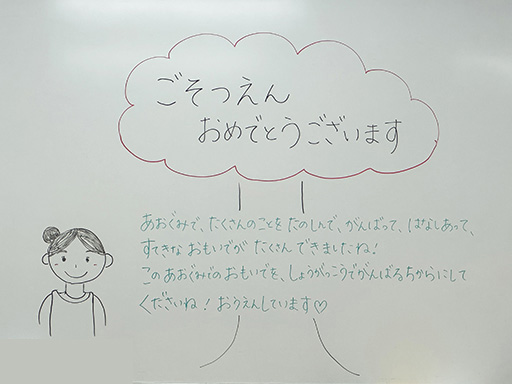 ごそつえん
おめでとうございます
あおぐみで、たくさんのことをたのしんで、がんばって、はなしあって、
すてきなおもいでがたくさんできましたね！
このあおぐみでのおもいでを、しょうがっこうでがんばるちからにして
くださいね！おうえんしています♡